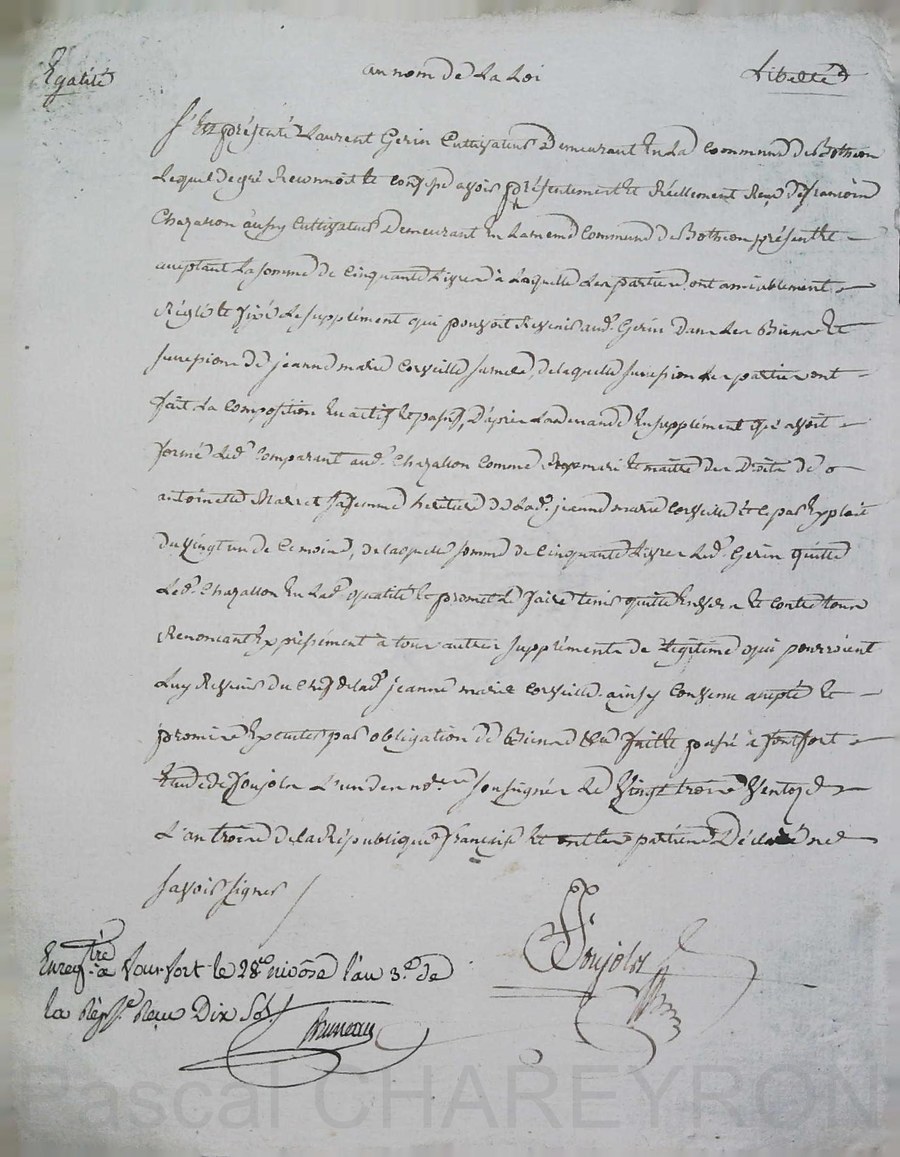 Egalité au nom de La Loi Libelté
S'Est présenté Laurent Gerin Cultivateur Demeurant En La Commune De Bothéon
Lequel de gré Reconnoit Et Confesse avoir présentement Et Réellement Reçu De francois
Chazallon aussy Cultivateur Demeurant En La meme Commune De Bothéon présent Et
aceptant La somme de Cinquante Livres à Laquelle Les parties ont amiablement
Réglé Et fixé Le supplément qui pouvoit Revenir aud. Gerin Dans Les Biens Et
sucession De jeanne marie Corveille sa mere, de laquelle sucession Les parties ont
fait La Composition En actif Et passif, D'après La demande En supplément que avoit
formé Led. Comparant aud. Chazallon Comme mari Et maitre Des Droits De
antoinette Marret sa femme heritiere De Lad. jeanne marie Corveille Et ce par Exploit
Du vingt un de Ce mois, de laquelle somme de Cinquante Livres Led. Gerin quitte
Led. Chazallon En Lad. qualité Et promet Le faire tenir quitte Envers Et Contre tous
Renoncant Expressément à tous autres supplements de Legitime qui pourroient
Luy Revenir Du Chef de lad. jeanne marie Corveille. ainsy Convenu accepté Et
promis Executer par obligation De Biens Et a faitte passé à fontfort
Etude de Poujols L'un des no.res soussignés Le Vingt trois Ventoze
L'an trois de la République française Et Les parties ont Déclaré ne
savoir signer
Poujols
Enreg.tré a Fonfort le 28.e nivôse l'an 3.e de
la Rép.e Reçu Dix Sols
Bruneau
Pascal CHAREYRON